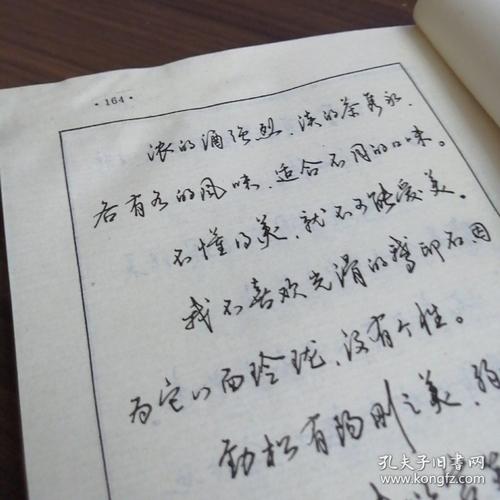 ·164·
浓的酒强烈、淡的茶隽永，
各有各的风味，适合不同的口味。
不懂得美，就不可能爱美。
我不喜欢光滑的鹅卵石，因
为它八面玲珑，没有个性。
劲松有阳刚之美，
孔夫子旧书网
www.kongfz.com